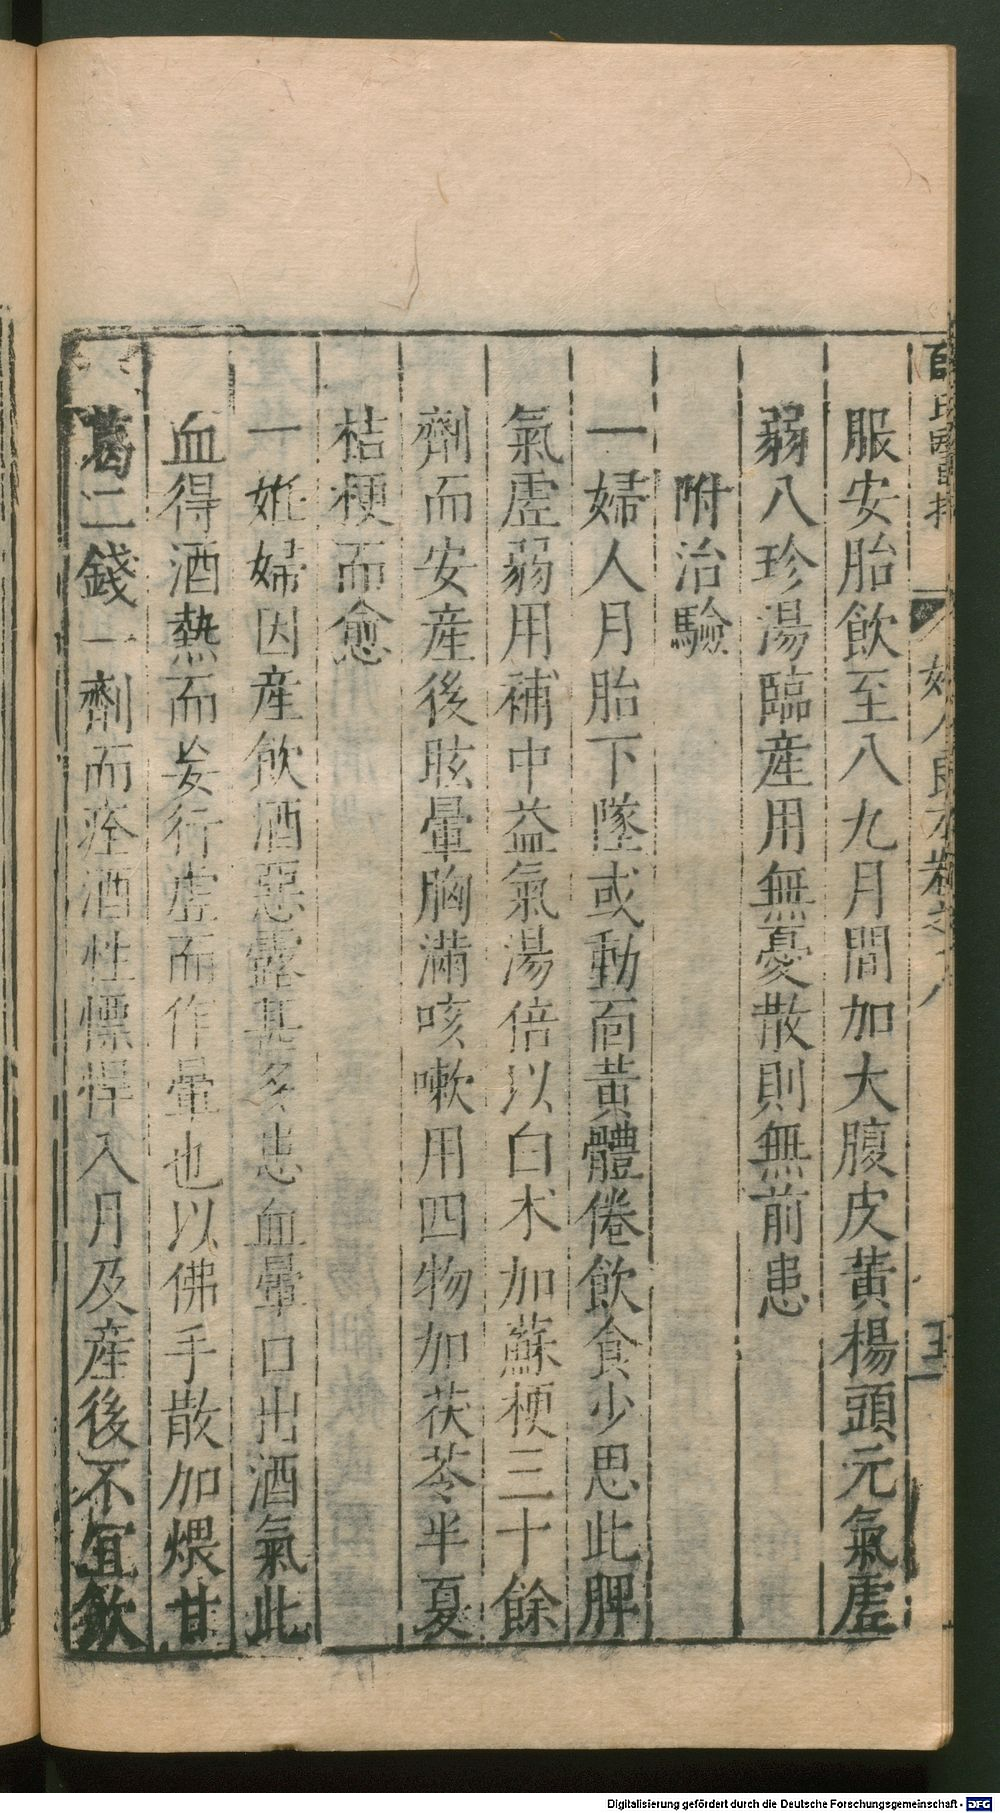 婦人良方卷之
服安胎飲至八九月間加大腹皮黃楊頭元氣虛
弱八珍湯臨産用無憂散則無前患
附治驗
一婦人月胎下墜或動面黃體倦飲食少思此脾
氣虛弱用補中益氣湯倍以白术加蘇梗三十餘
劑而安産後眩暈胸滿咳嗽用四物加茯苓半夏
桔梗而愈
一妊婦因産飲酒惡露甚多患血暈口出酒氣此
血得酒熱而妄行虛而作暈也以佛手散加煨甘
葛二錢一劑而痊酒性慓悍入月及産後不宜飲
Digitalisierung gefördert durch die Deutsche Forschungsgemeinschaft - DFG